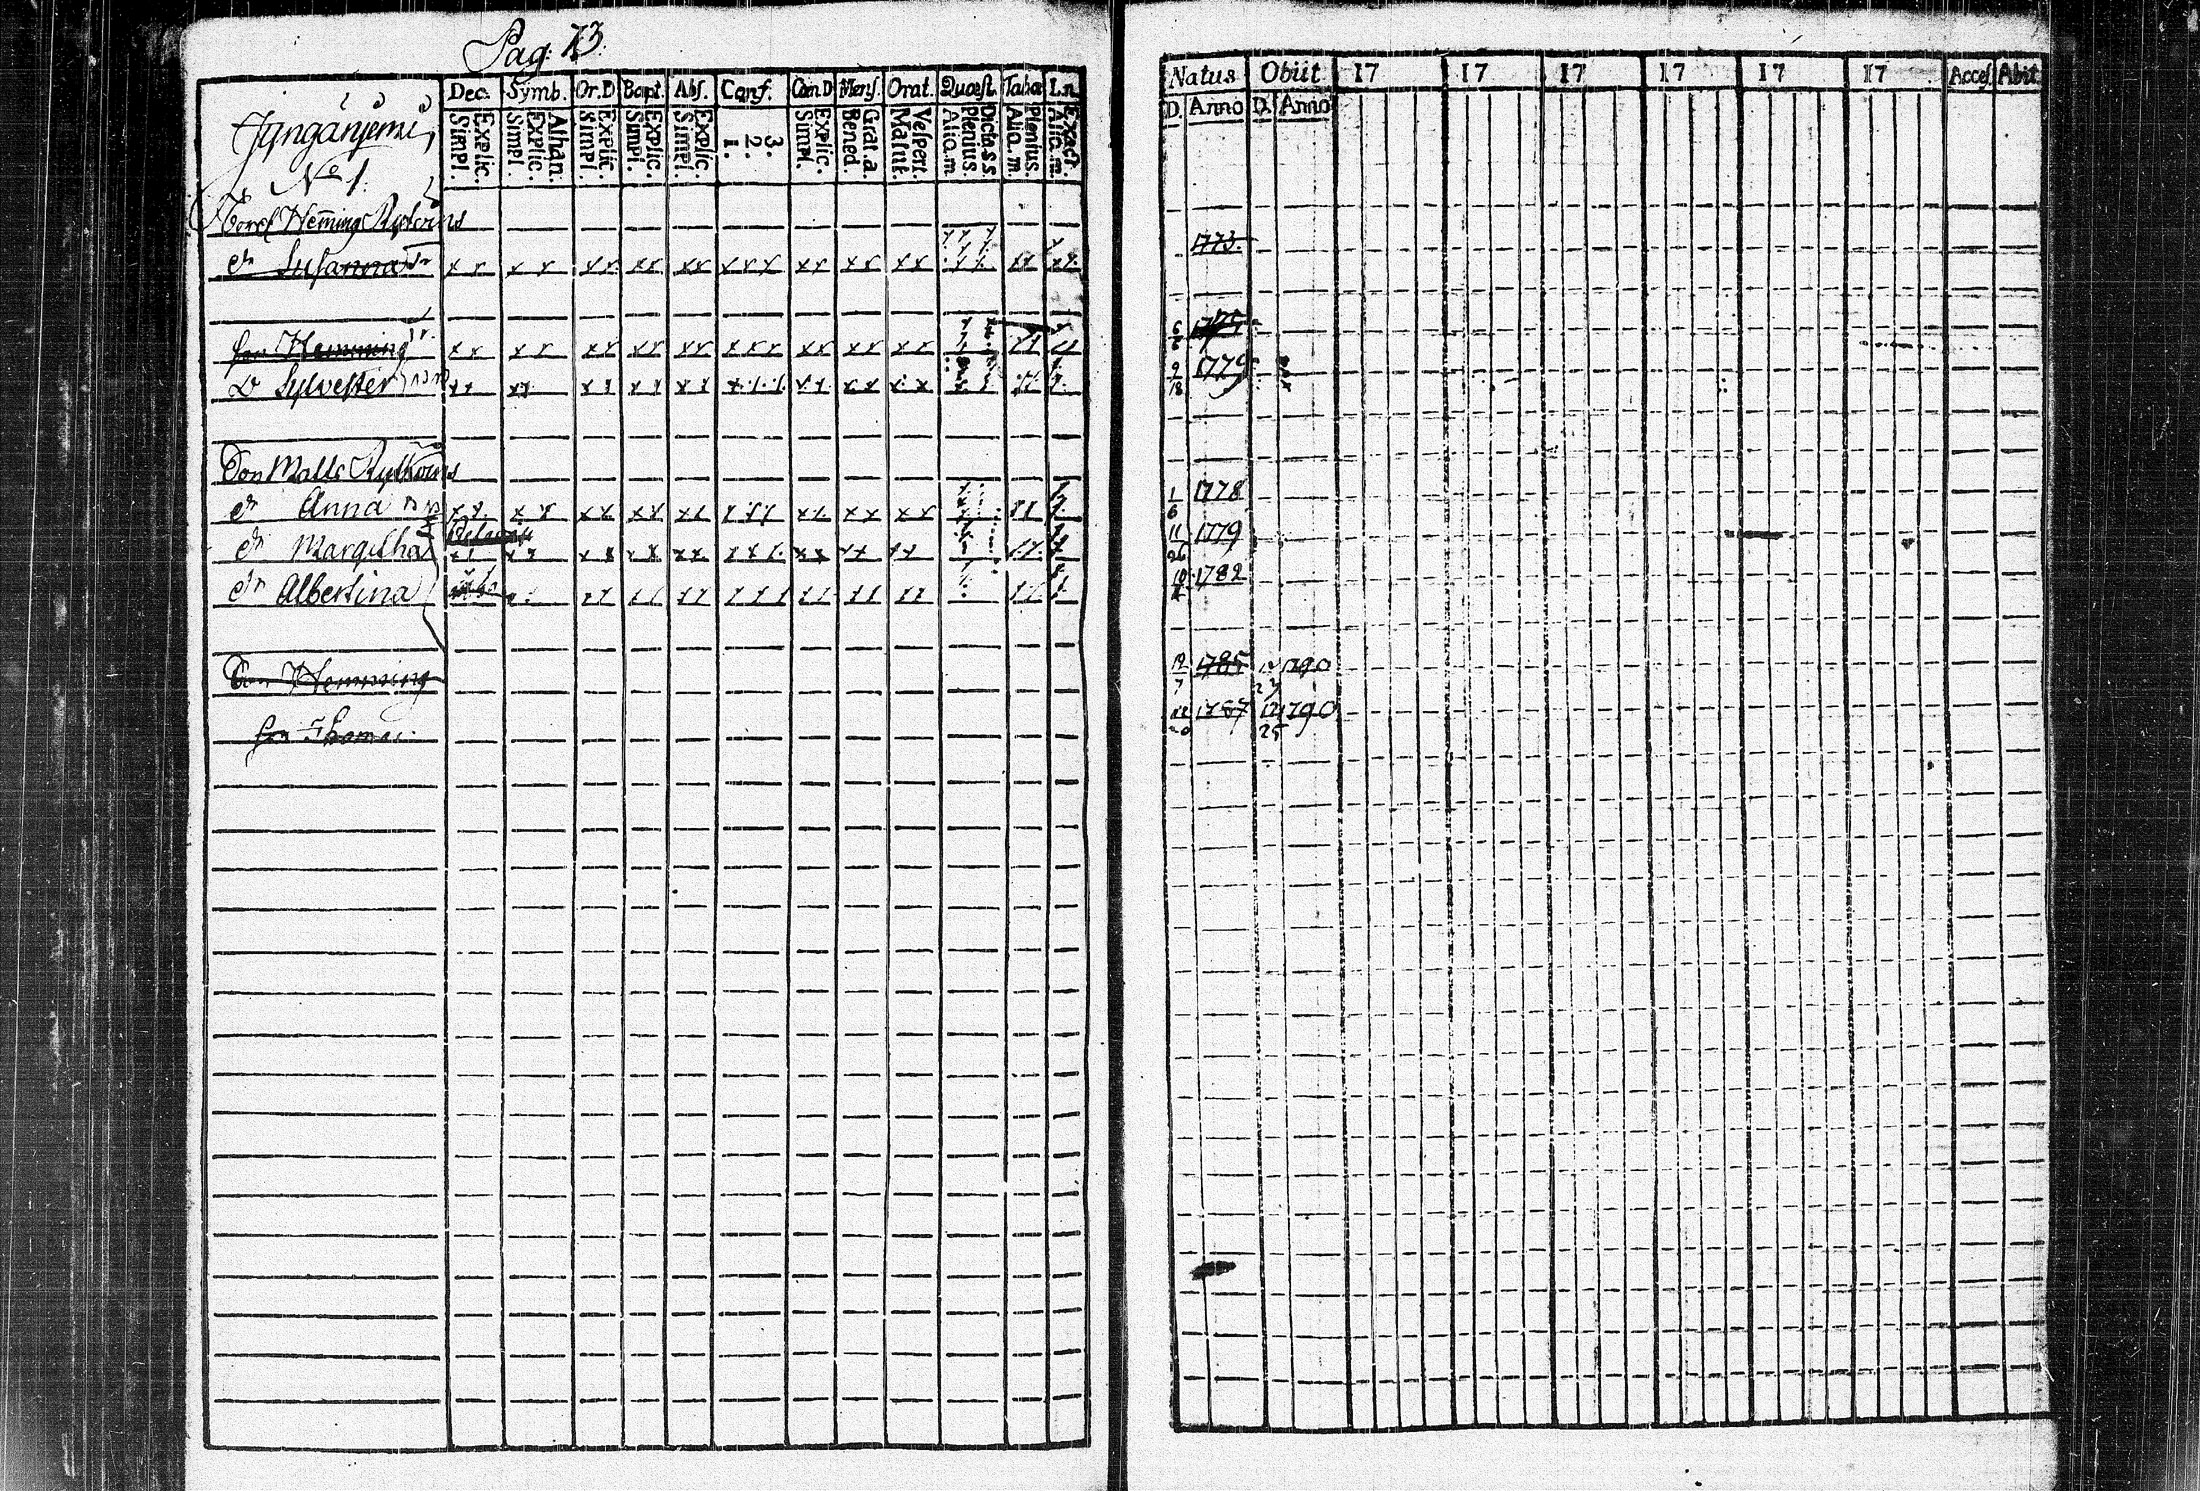 Pag: 73.
Dec. Symb. Or.D Bapt. Abs. Conf. Cœn.D Mens. Orat. Quæst. Taba Ln.
Explic. Simpl. Athan. Explic. Simpl. Explic. Simpl. Explic. Simpl. Explic. Simpl. 3. 2. 1. Explic. Simpl. Grat.a. Bened. Vespert. Matut. Dicta s.s. Plenius. Aliq.m. Plenius. Aliq.m. Exact. Aliq.m.
No 1.
Hemming
dr Susanna
son Hemming
Do Sylvester
Son Matts
dr Anna
dr Margetha
dr Albertina
Son Hemming
son Thomas
Natus Obiit 17 17 17 17 17 17 Acces Abit
D. Anno D. Anno
1773.
6 1775
9 18 1779
1 6 1778
11 26 1779
10 1782
19 7 1785 12 27 1790
1787 12 25 1790